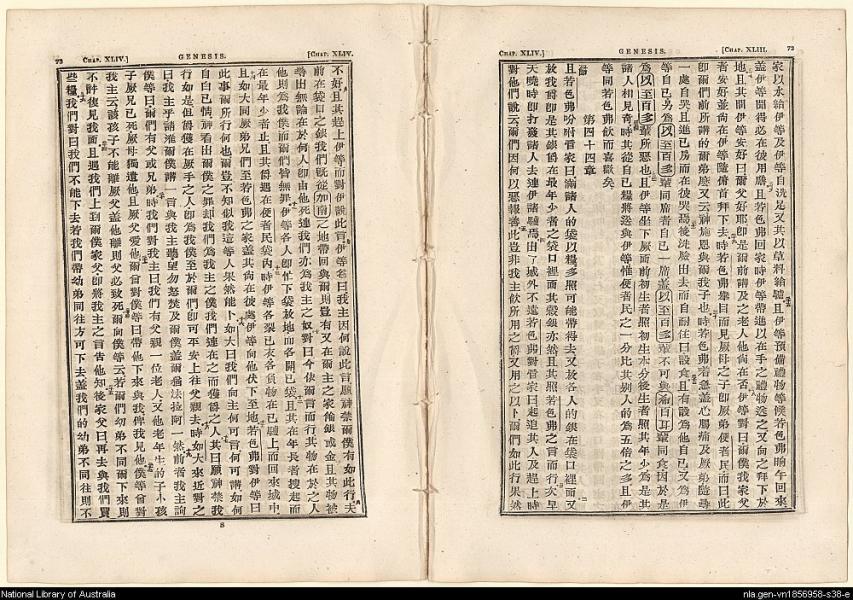 CHAP. XLIV.]
GENESIS.
[CHAP. XLIII.
72
家以水給伊等及伊等自洗足又其以草料給驢且伊等預備禮物等候若色弗晌午回來
蓋伊等聞得必在彼用膳且若色弗回家時伊等帶進以在手之禮物送之又向之拜下於
地且其問伊等安好曰爾父好耶即是爾前講及之老人他尚在否伊等對曰爾僕我家父
者安好並尚在伊等隨俯首拜下去時若色弗舉目而見厥母之子即厥弟便者民而曰此
即爾們前所講的爾弟麼又云神施恩與爾我子也時若色弗着急蓋心腸痛及厥弟隨尋
一處自哭且進己房而在彼哭焉後洗臉出去而自耐住曰設食且有設為他自己又為伊
等自己另為以至百多輩同席者自己一席蓋以至百多輩不可與希百耳輩同食因於是
為以至百多輩所惡也且伊等坐下厥面前初生者照初生本分後生者照其年少為是其
諸人相見奇時其從自己糧將送與伊等惟便者民之一分比其別人的為五倍之多且伊
等同若色弗飲而喜歡矣
第四十四章
且若色弗吩咐管家曰滿諸人的袋以糧多照可能帶得去又放各人的銀在袋口裡面又
放我爵即是其銀爵在最年少者之袋口裡面其穀銀亦然且其照若色弗之言而行次早
天曉時即打發諸人去連伊諸驢焉由了城外不遠若色弗對管家曰起追其人及趕上時
對他們說云爾們因何以惡報善此豈非我主飲所用之爵又用之以卜爾們如此行果然
73
CHAP. XLIV.]
GENESIS.
[CHAP. XLIV.
不好且其趕上伊等而對伊說此言伊等答曰我主因何說此言願神禁爾僕有如此行夫
前在袋口之銀我們既從加南之地帶回與爾則豈有又在爾主之家偷銀或金且其物被
尋出無論在於何人即由他死連我們亦為我主之奴對曰今依爾言而行其物在於之人
他則為我僕而爾們皆無罪伊等各人即忙下袋放地而各開己袋且其在年長者搜起而
在最年少者止且其爵遇在便者民袋內時伊等各裂己衣各負物在己驢上而回來城中
且如大同厥弟兄們至若色弗之家蓋其尚在彼處伊等向他伏下至地若色弗對伊等曰
此事爾所行何也爾豈不知似我這等人果然能卜如大曰我們向主何可言何可講如何
自白己情神看出爾僕之罪卻我們為我主之僕我們連在之而獲爵之人其曰願神禁我
行如是但爵獲在厥手之人即為我僕至於爾們即可平安上往父親去時如大來近對之
曰我主乎請准爾僕講一言與我主聽望勿怒焚及爾僕蓋爾猶法拉阿一然前者我主詢
僕等曰爾們有父或兄弟時我們對我主曰我們有父親一位老人又他老年生的子小孩
子厥兄已死厥母獨遺他且厥父愛他爾曾對僕等曰帶他下來與我俾我見他僕等曾對
我主云該孩子不能離厥父蓋他離則父必致死爾向僕等云若爾們幼弟不同爾下來則
不許復見我面且遇我們上到爾僕家父即將我主之言告他知後家父曰再去與我們買
些糧我們對曰我們不能下去若我們帶幼弟同往方可下去蓋我們的幼弟不同往則不
S
National Library of Australia
nla.gen-vn1856958-s38-e